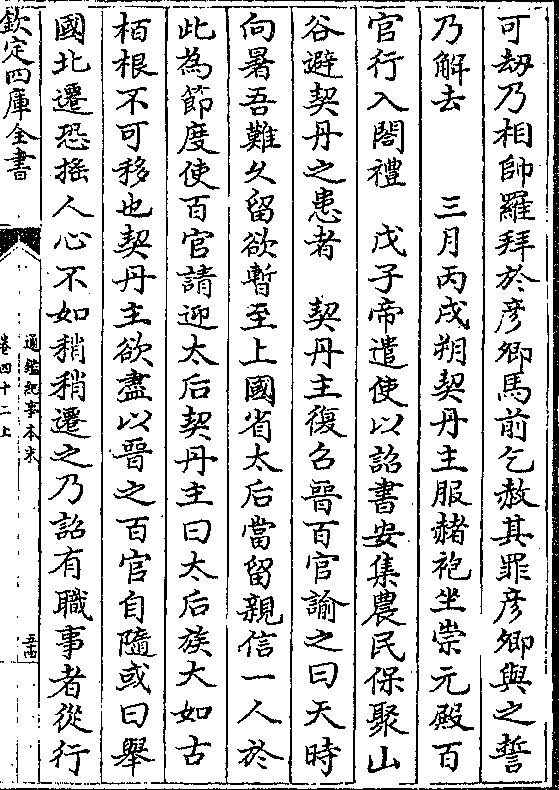 可刼乃相帥羅拜於彦卿馬前乞赦其罪彦卿與之誓
乃解去　三月丙戌朔契丹主服赭袍坐崇元殿百
官行入閤禮　戊子帝遣使以詔書安集農民保聚山
谷避契丹之患者　契丹主復召晉百官諭之曰天時
向暑吾難久留欲暫至上國省太后當留親信一人於
此為節度使百官請迎太后契丹主曰太后族大如古
栢根不可移也契丹主欲盡以晉之百官自隨或曰舉
國北遷恐揺人心不如稍稍遷之乃詔有職事者從行
欽定四庫全書
通鑑紀事本末
卷四十二上
五十四